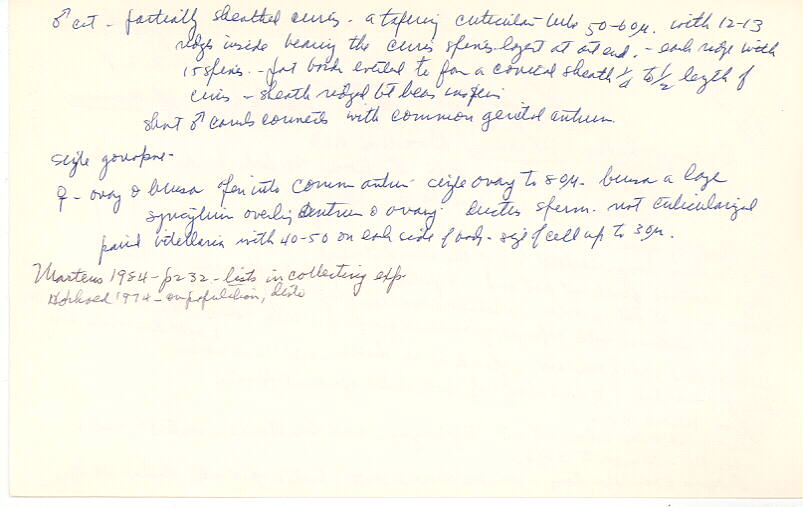 ♂ cut - partially sheathed cirrus - a tapering cuticular tube 50-60μ. with 12-13
ridges inside bearing the cirrus spines longest at end. - each ridge with
15 spines. - part everted to form a conical sheath ¼ to ½ length of
cirrus - sheath ridged but bears no spines
short ♂ canal connects with common genital antrum.
single gonopore -
♀ - ovary & bursa open into common antrum single ovary to 80μ. bursa a large
overlying antrum & ovary. ductus sperm. not cuticularized
paired vitellaria with 40-50 on each side of body - size of cell up to 30μ.
Martens 1984 - p232 - lists in collecting
1974 - on population,